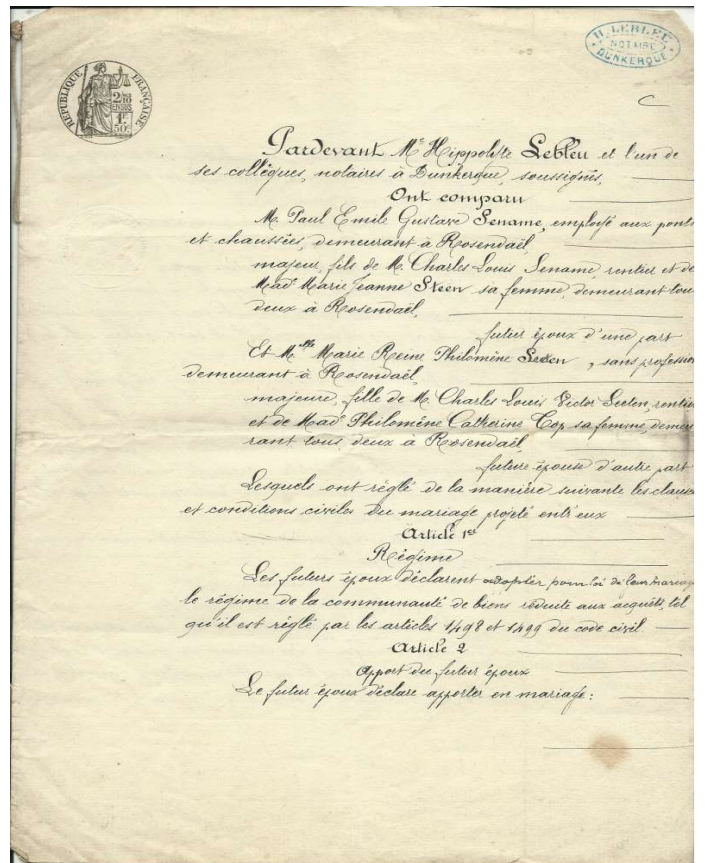 H. LEBLEU
NOTAIRE
DUNKERQUE
RÉPUBLIQUE FRANÇAISE
2/10
EN SUS
1F.
50c.
C
Pardevant Me Hippolyte Lebleu et l'un de
ses collègues, notaires à Dunkerque, soussignés,
Ont comparu
M. Paul Emile Gustave Sename, employé aux ponts
et chaussées, demeurant à Rosendaël,
majeur, fils de M. Charles Louis Sename, rentier et de
Made Marie Jeanne Steen sa femme, demeurant tou
deux à Rosendaël,
futur époux d'une part
Et Mlle Marie Reine Philomène , sans profession
demeurant à Rosendaël
majeure, fille de M. Charles Louis Victor , rentier
et de Made Philomène Catherine Cop sa femme, demeu
rant tous deux à Rosendaël
future épouse d'autre part
Lesquels ont réglé de la manière suivante les clauses
et conditions civiles du mariage projeté entr'eux
Article 1er
Régime
Les futurs époux déclarent adopter pour loi de leur mariage
le régime de la communauté de biens réduite aux acquêts, tel
qu'il est réglé par les articles 1498 et 1499 du code civil.
Article 2
Apport du futur époux
Le futur époux déclare apporter en mariage :